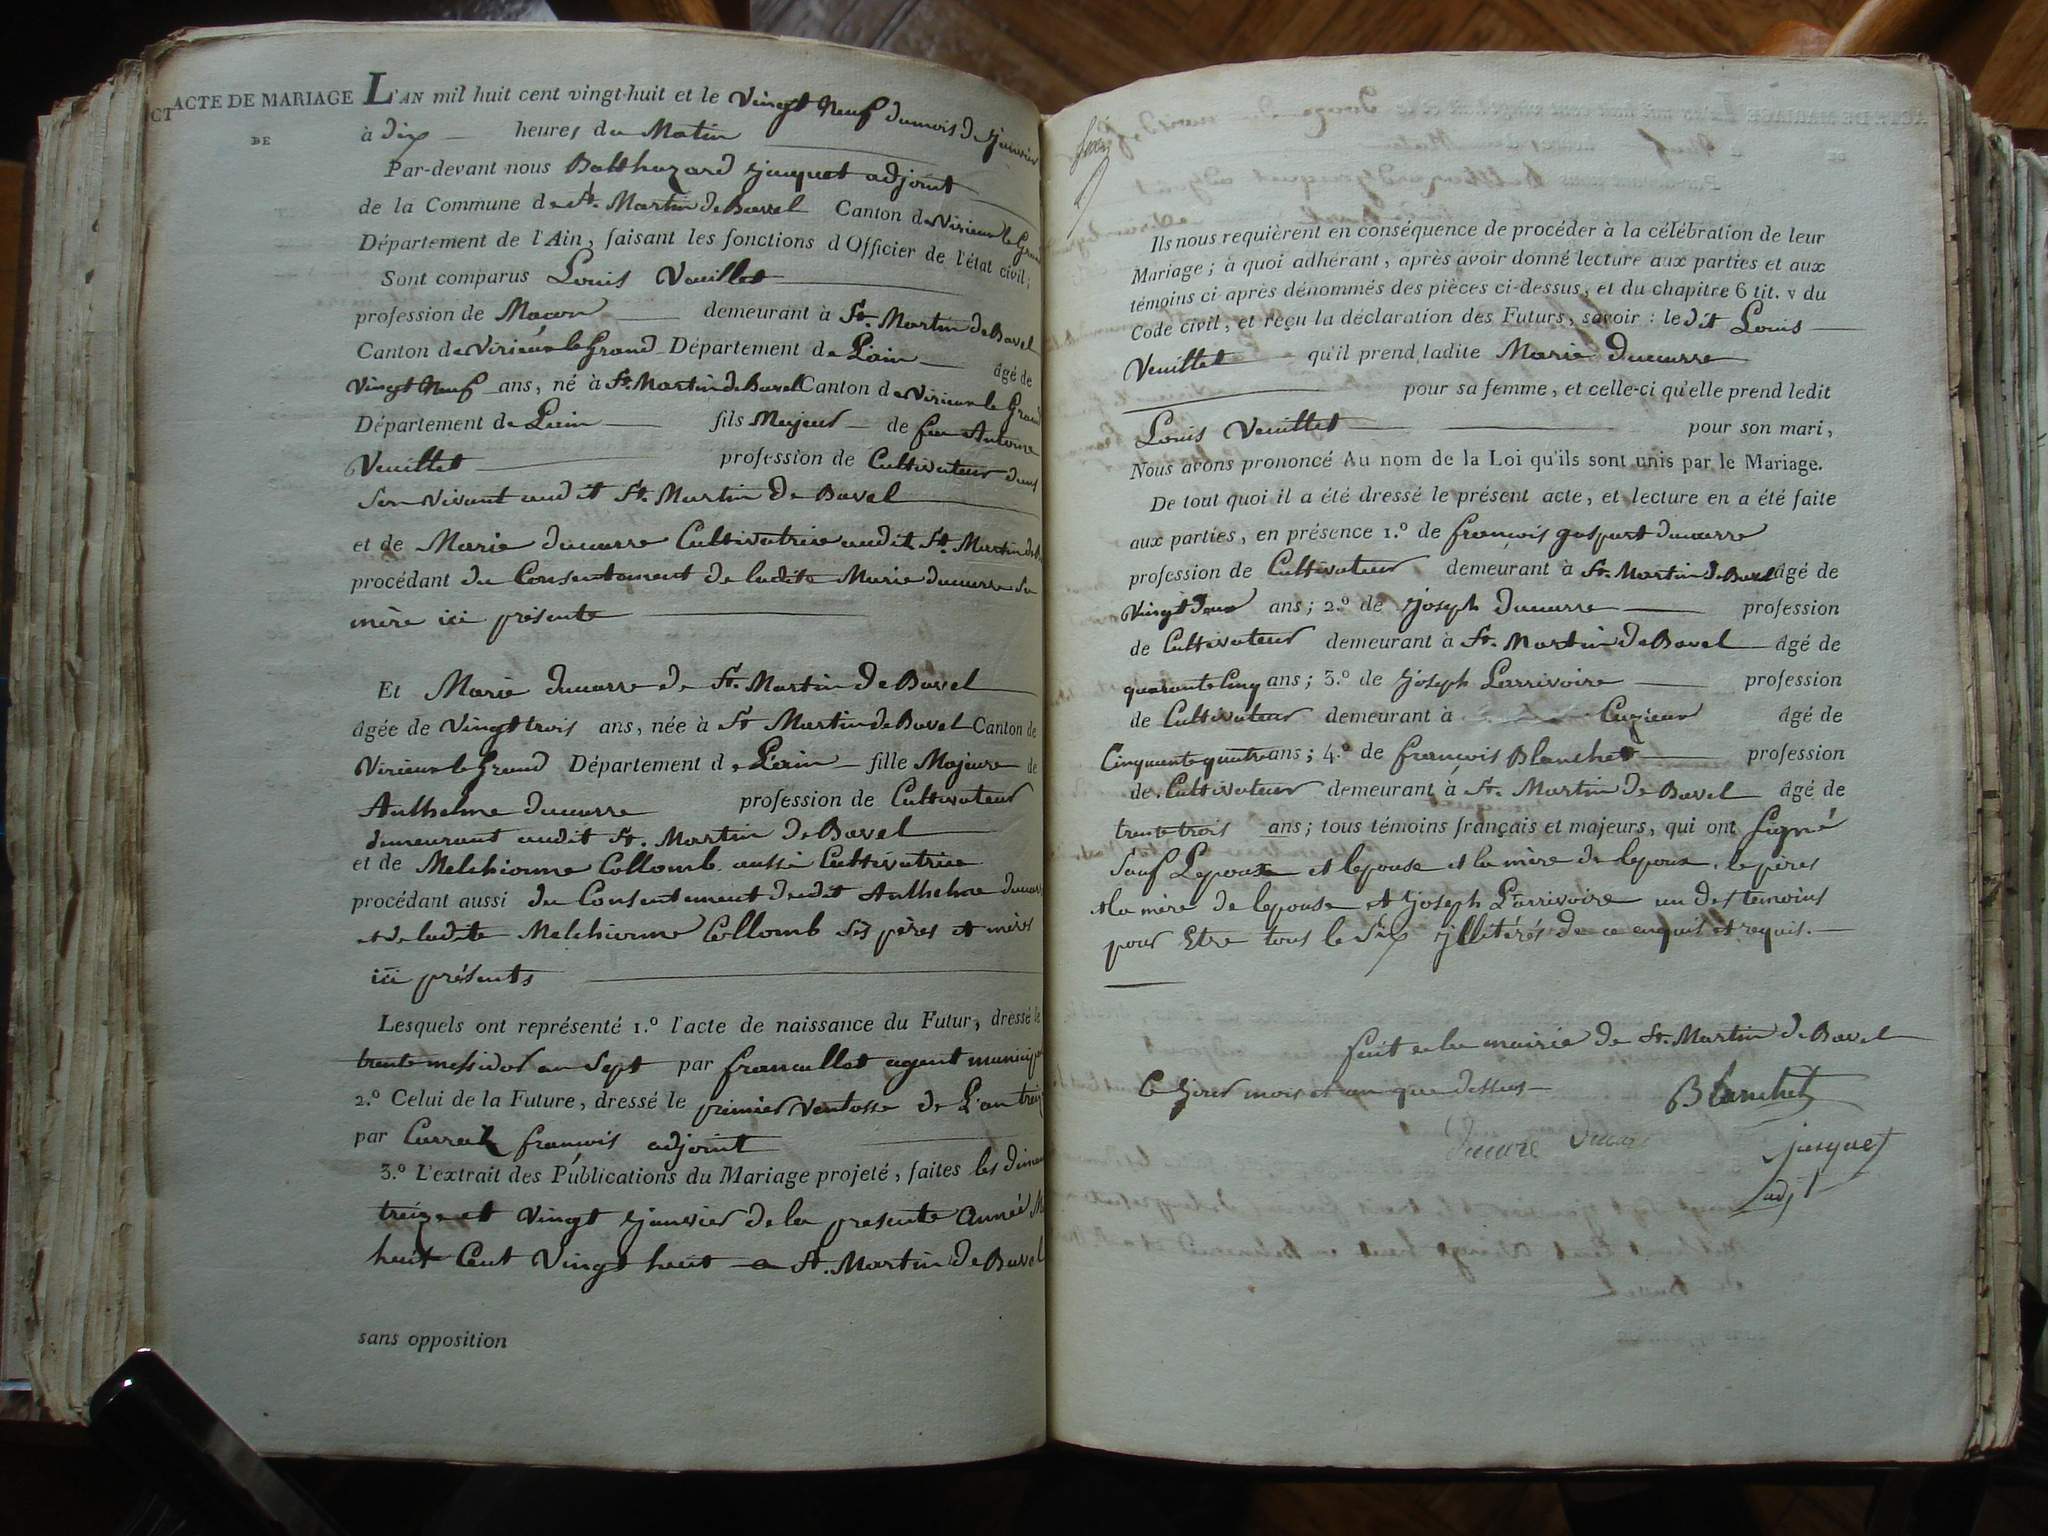 ACTE DE MARIAGE
DE
L'AN mil huit cent vingt-huit et le Vingt Neuf dumois de Janvier
à dix heures du Matin
Par-devant nous Balthazard Jacquet adjoint
de la Commune de St. Martin de Bavel Canton de Virieux le Grand
Département de l'Ain, faisant les fonctions d'Officier de l'état civil;
Sont comparus Louis Veuillet
profession de Maçon demeurant à St. Martin de Bavel
Canton de Virieux le Grand Département de L'ain âgé de
Vingt Neuf ans, né à St. Martin de Bavel Canton de Virieux le Grand
Département de L'ain fils Majeur de feu Antoine
Veuillet profession de Cultivateur dans
Son vivant audit St. Martin de Bavel
et de Marie ducarre Cultivatrice audit St. Martin de B
procédant du Consentement de ladite Marie ducarre Sa
mère ici présente
Et Marie ducarre de St. Martin de Bavel
âgée de Vingt trois ans, née à St Martin de Bavel Canton de
Virieux le Grand Département de L'ain fille Majeure de
Anthelme ducarre profession de Cultivateur
demeurant audit St. Martin de Bavel
et de Melchionne Collomb aussi Cultivatrice
procédant aussi du Consentement dudit Anthelme ducarre
et de ladite Melchionne Collomb Ses pères et mères
ici présents
Lesquels ont représenté 1.º l'acte de naissance du Futur, dressé le
trente messidor an Sept par francallet agent municip
2.º Celui de la Future, dressé le premier Ventosse de L'an treiz
par Carrel françois adjoint
3.º L'extrait des Publications du Mariage projeté, faites les diman
treize et Vingt Janvier de la presente Année M
huit Cent Vingt huit a St. Martin de Bavel
sans opposition
Ils nous requièrent en conséquence de procéder à la célébration de leur
Mariage; à quoi adhérant, après avoir donné lecture aux parties et aux
témoins ci-après dénommés des pièces ci-dessus, et du chapitre 6 tit. v du
Code civil, et reçu la déclaration des Futurs, savoir: ledit Louis
Veuillet qu'il prend ladite Marie Ducarre
pour sa femme, et celle-ci qu'elle prend ledit
Louis Veuillet pour son mari,
Nous avons prononcé Au nom de la Loi qu'ils sont unis par le Mariage.
De tout quoi il a été dressé le présent acte, et lecture en a été faite
aux parties, en présence 1.º de françois gaspart ducarre
profession de Cultivateur demeurant à St. Martin de Bavel âgé de
Vingt deux ans; 2.º de Joseph Ducarre profession
de Cultivateur demeurant à St. Martin de Bavel âgé de
quarante Cinq ans; 3.º de Joseph Larrivoire profession
de Cultivateur demeurant à Cuzieux âgé de
Cinquante quatre ans; 4.º de françois Blanchet profession
de Cultivateur demeurant à St. Martin de Bavel âgé de
trente trois ans; tous témoins français et majeurs, qui ont Signé
Sauf L'epoux et lepouse et la mère de lepoux, le pères
et la mère de lepouse et Joseph Larrivoire un des temoins
pour Etre tous le Six Jllitérés de ce enquis et requis.
fait a la mairie de St. Martin de Bavel
le Jour mois et an que dessus
Blanchet
Ducare Ducare
Jacquet
adjt